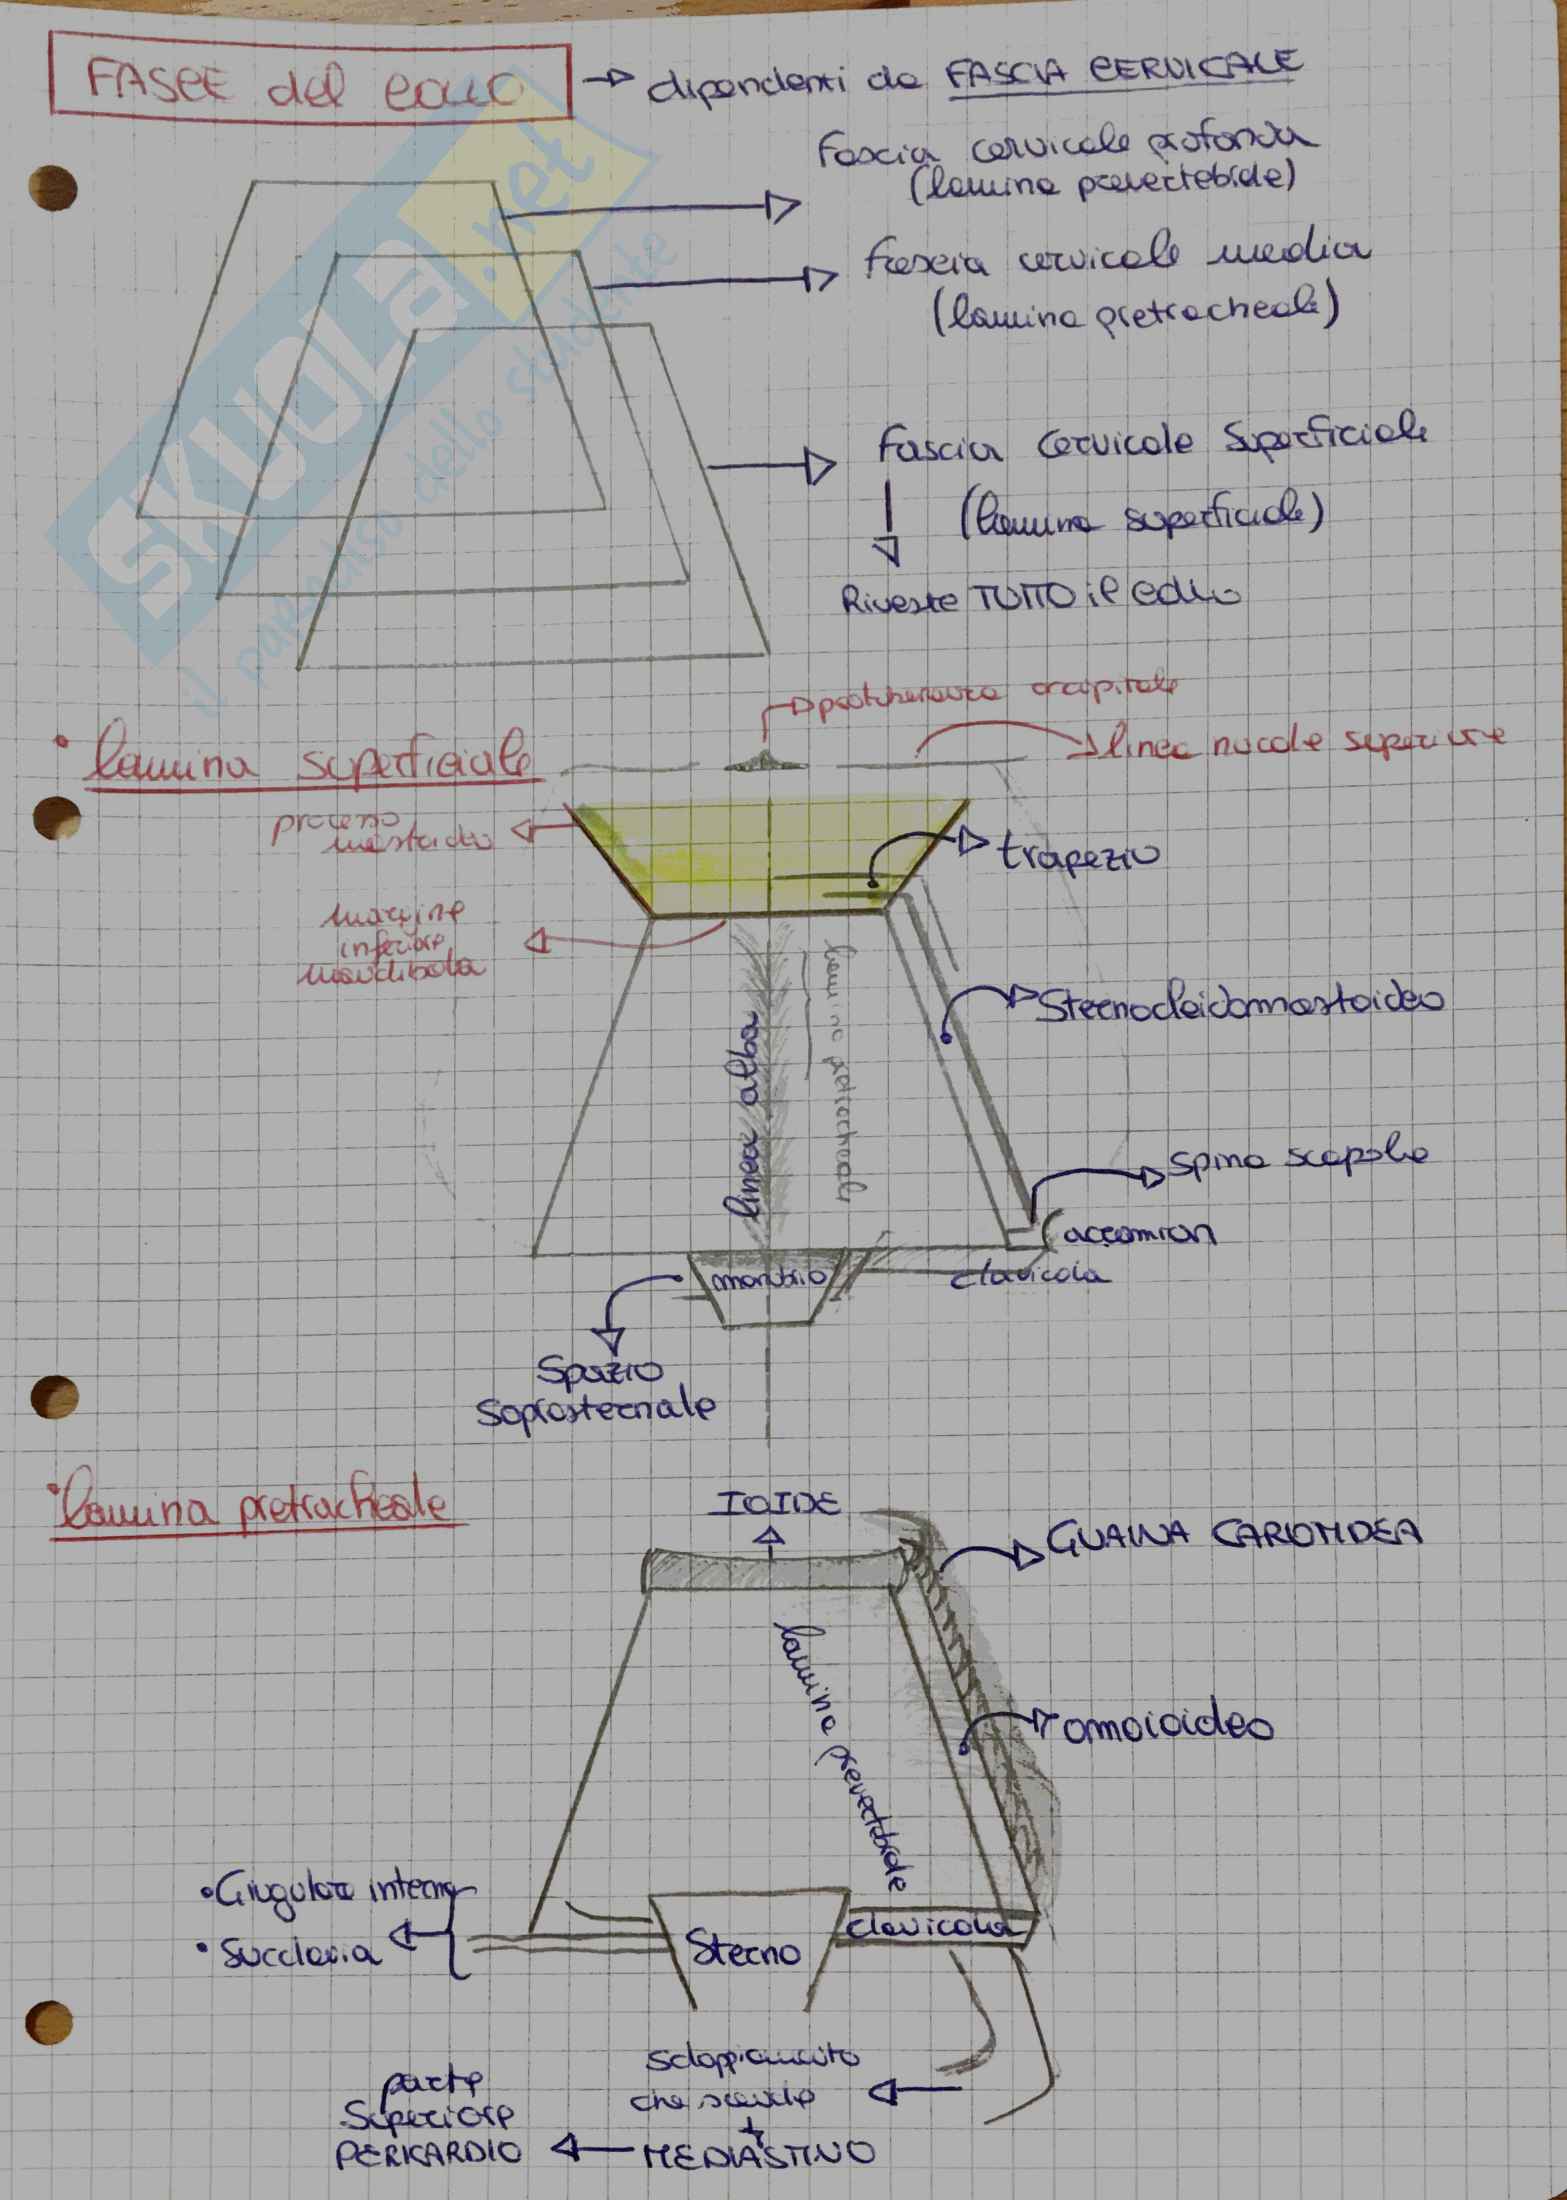 FASCE del collo → dipendenti da FASCIA CERVICALE
Fascia cervicale profonda
(lamina prevertebrale)
Fascia cervicale media
(lamina pretracheale)
Fascia cervicale superficiale
(lamina superficiale)
Riveste TUTTO il collo
SKUOLA.net
il paradiso dello studente
protuberanza occipitale
linea nucale superiore
• lamina superficiale
processo
mastoideo
trapezio
margine
inferiore
mandibola
linea alba
lamina pretracheale
Sternocleidomastoideo
Spina scapola
accomion
manubrio
clavicola
Spazio
Soprasternale
• lamina pretracheale
IOIDE
GUAINA CAROTIDEA
lamina prevertebrale
omoioideo
• Giugulare interna
• Succlavia
Sterno
clavicola
sdoppiamento
che scende
+
MEDIASTINO
parte
Superiore
PERICARDIO